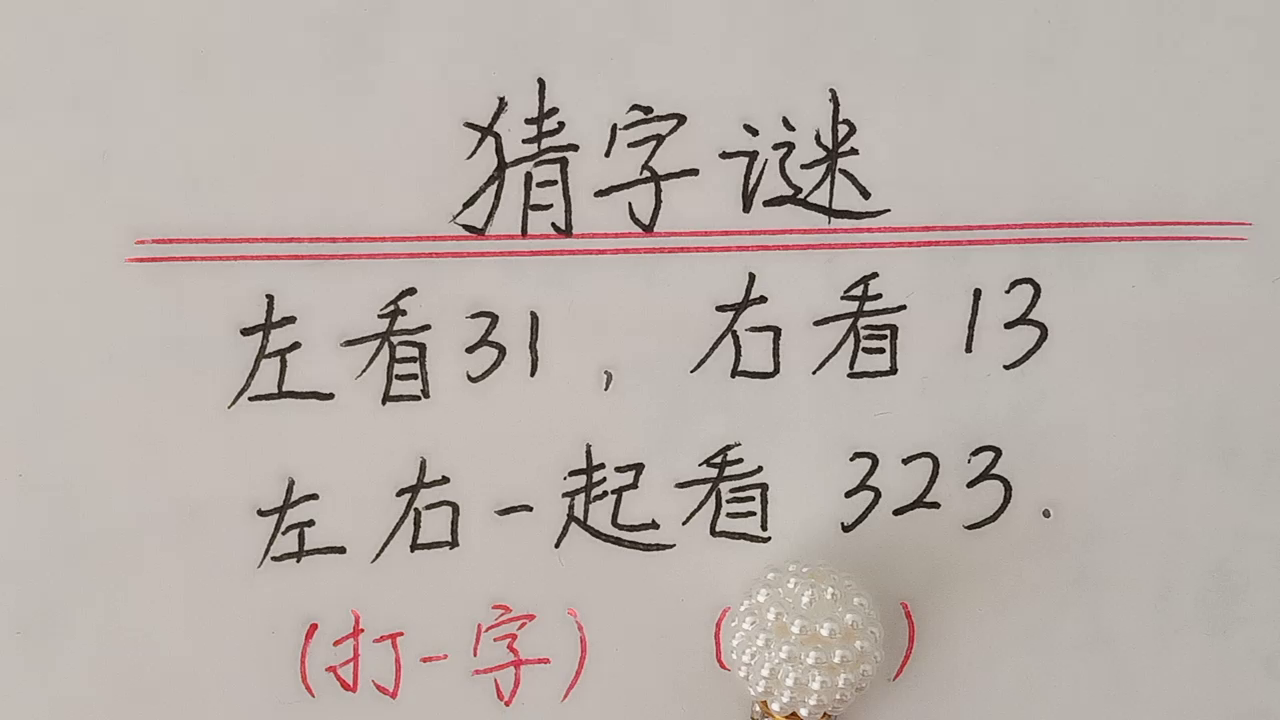 猜字谜
左看31，右看13
左右一起看323.
(打一字) ( )